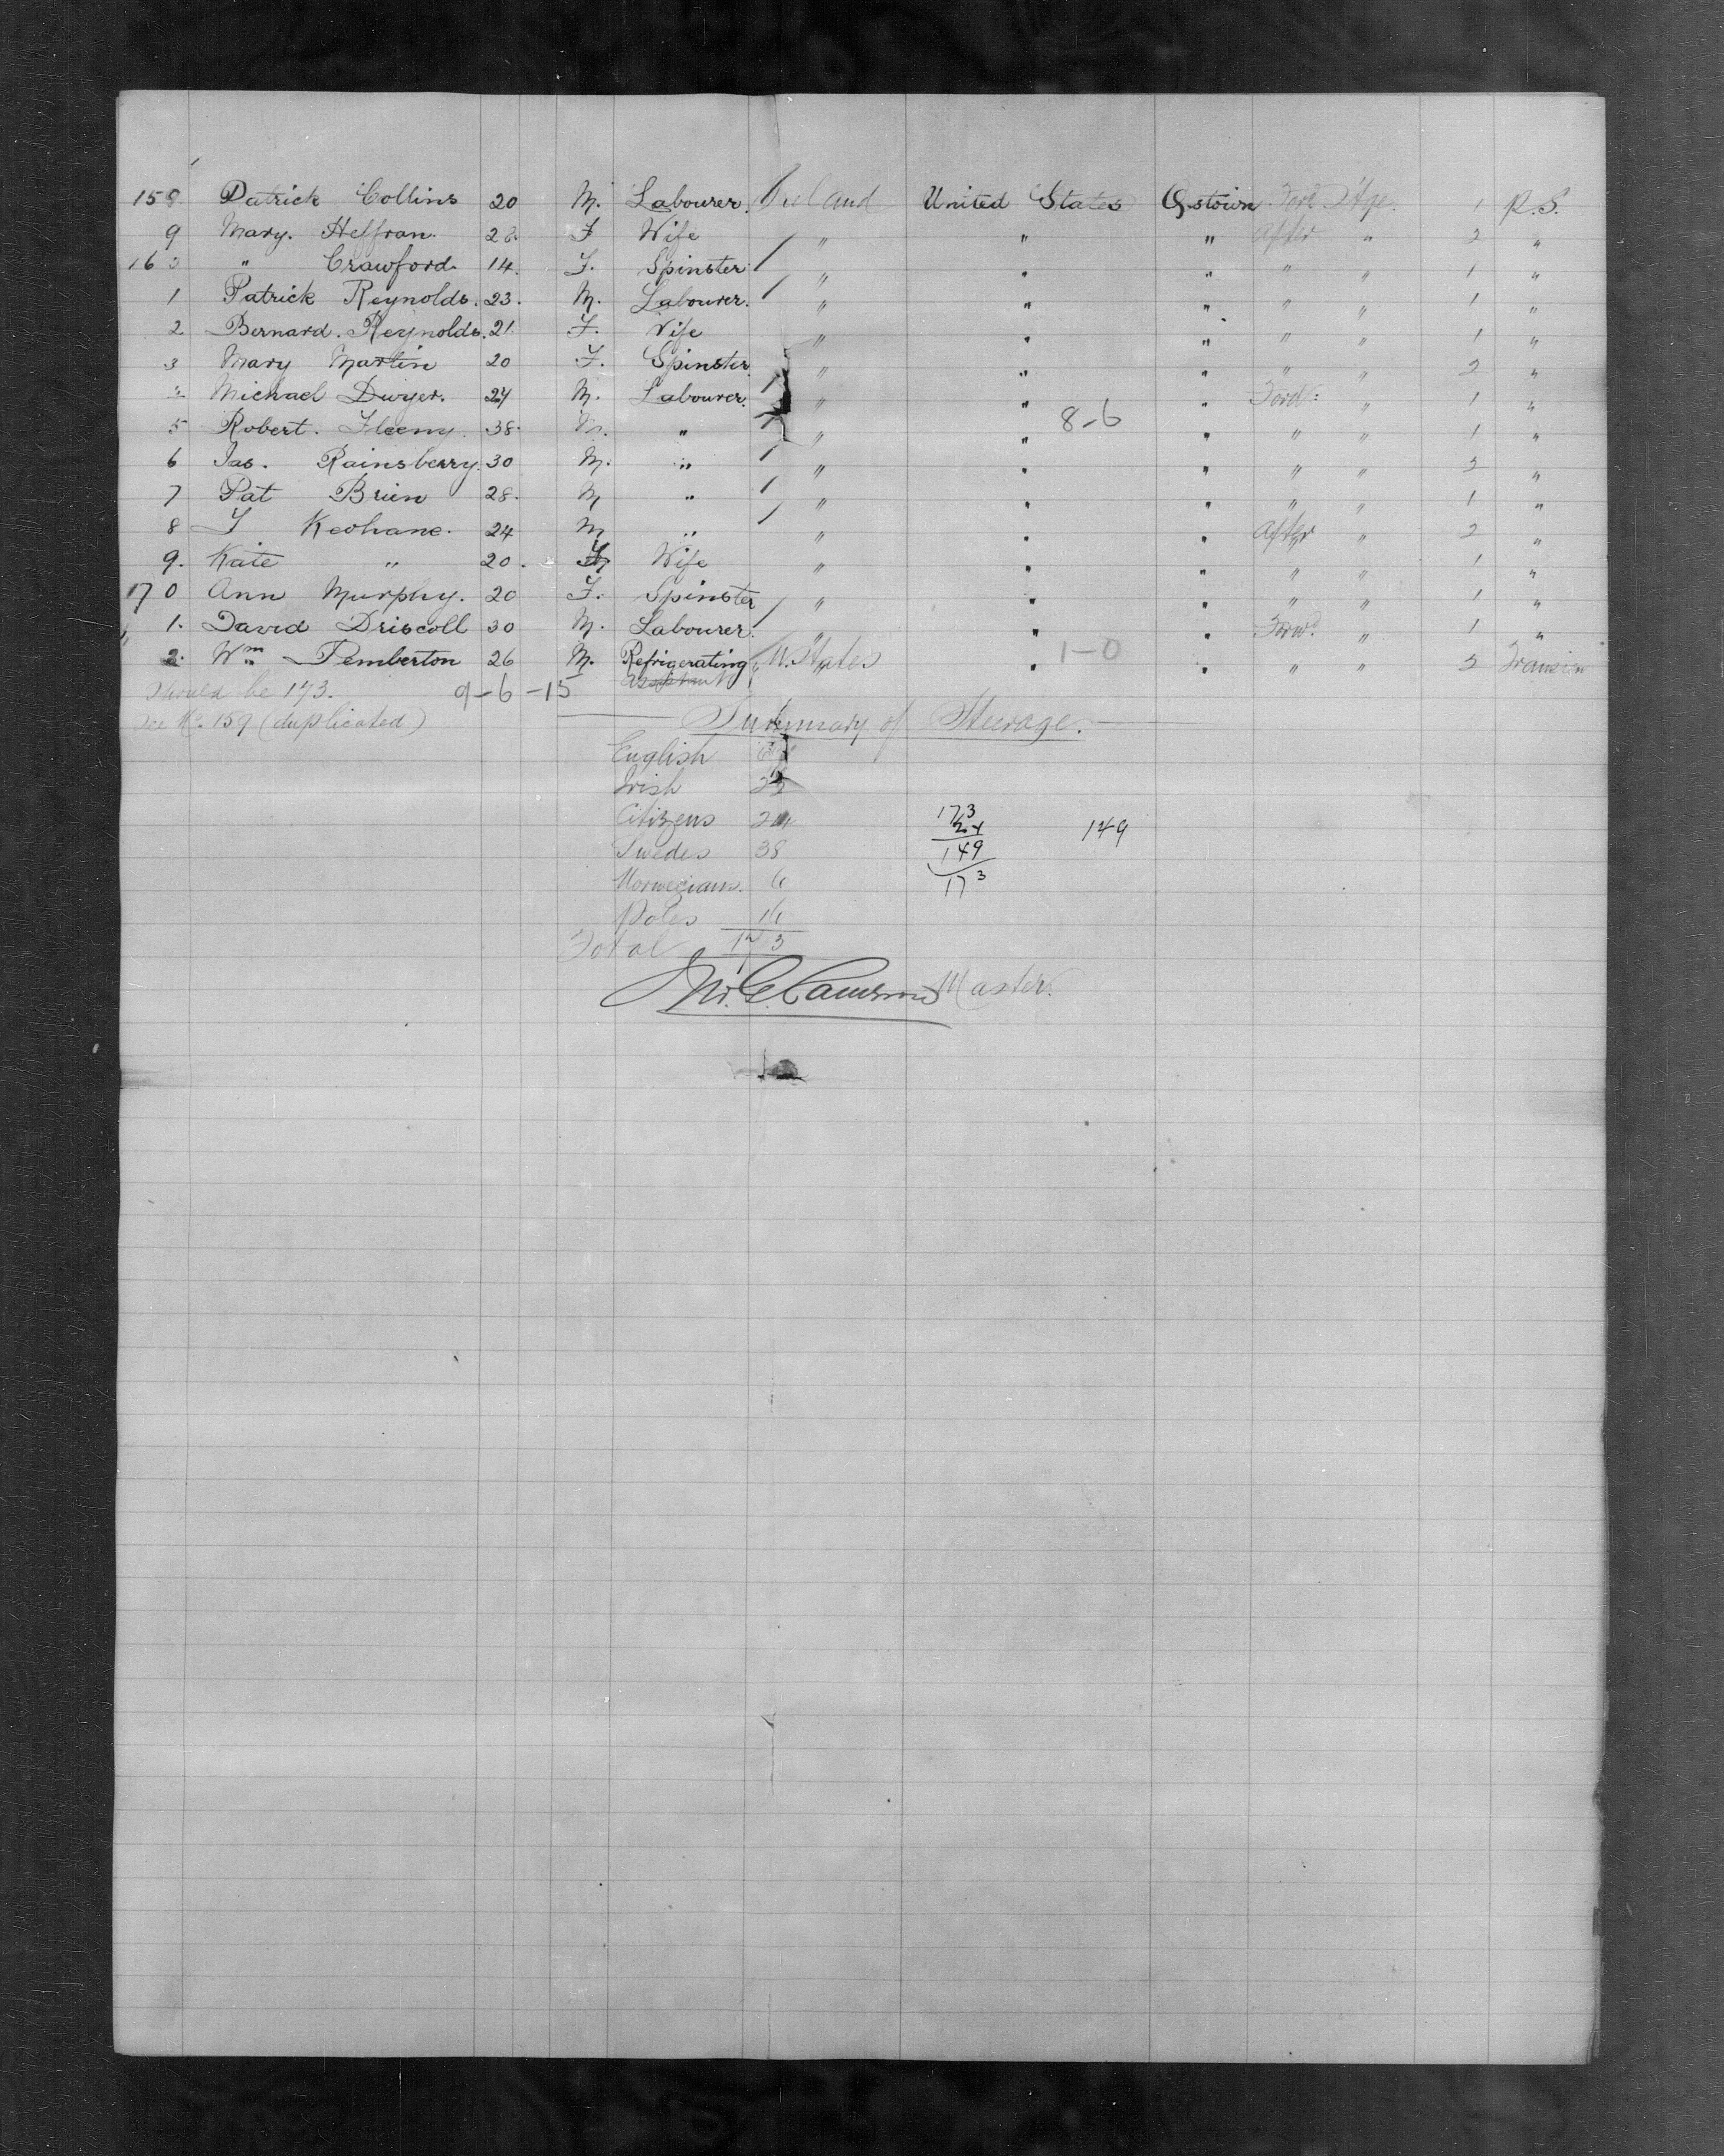 159 Patrick Collins 20 M. Labourer. Ireland United States Qstown Ford Stge. 1 P.S.
9 Mary. Heffran. 28. F Wife " " " After " 2 "
160 " Crawford. 14. F. Spinster " " " " " 1 "
1 Patrick Reynolds. 23. M. Labourer. " " " " " 1 "
2 Bernard. Reynolds. 21. F. Wife " " " " " 1 "
3 Mary Martin 20 F. Spinster. " " " " " 2 "
4 Michael Dwyer. 24 M. Labourer. " " " Ford: " 1 "
5 Robert. 38. M. " " " 8-6 " " " 1 "
6 Jas. Rainsberry. 30 M. " " " " " " 2 "
7 Pat Brien 28. M " " " " " " 1 "
8 Keohane. 24 M " " " " After " 2 "
9. Kate " 20. F Wife " " " " " 1 "
170 Ann Murphy. 20 F. Spinster " " " " " 1 "
1. David Driscoll 30 M. Labourer. " " " Forwd. " 1 "
2. Wm Pemberton 26 M. Refrigerating U. States " 1-0 " " " 2 Transient
Assistant
Should be 173. 9-6-15
See No. 159 (duplicated)
Summary of Steerage.
English
Irish
Citizens 24
Swedes 38
Norwegians. 6
Poles 16
Total 173
173
24
149
173
149
Jno. G. Cameron Master.